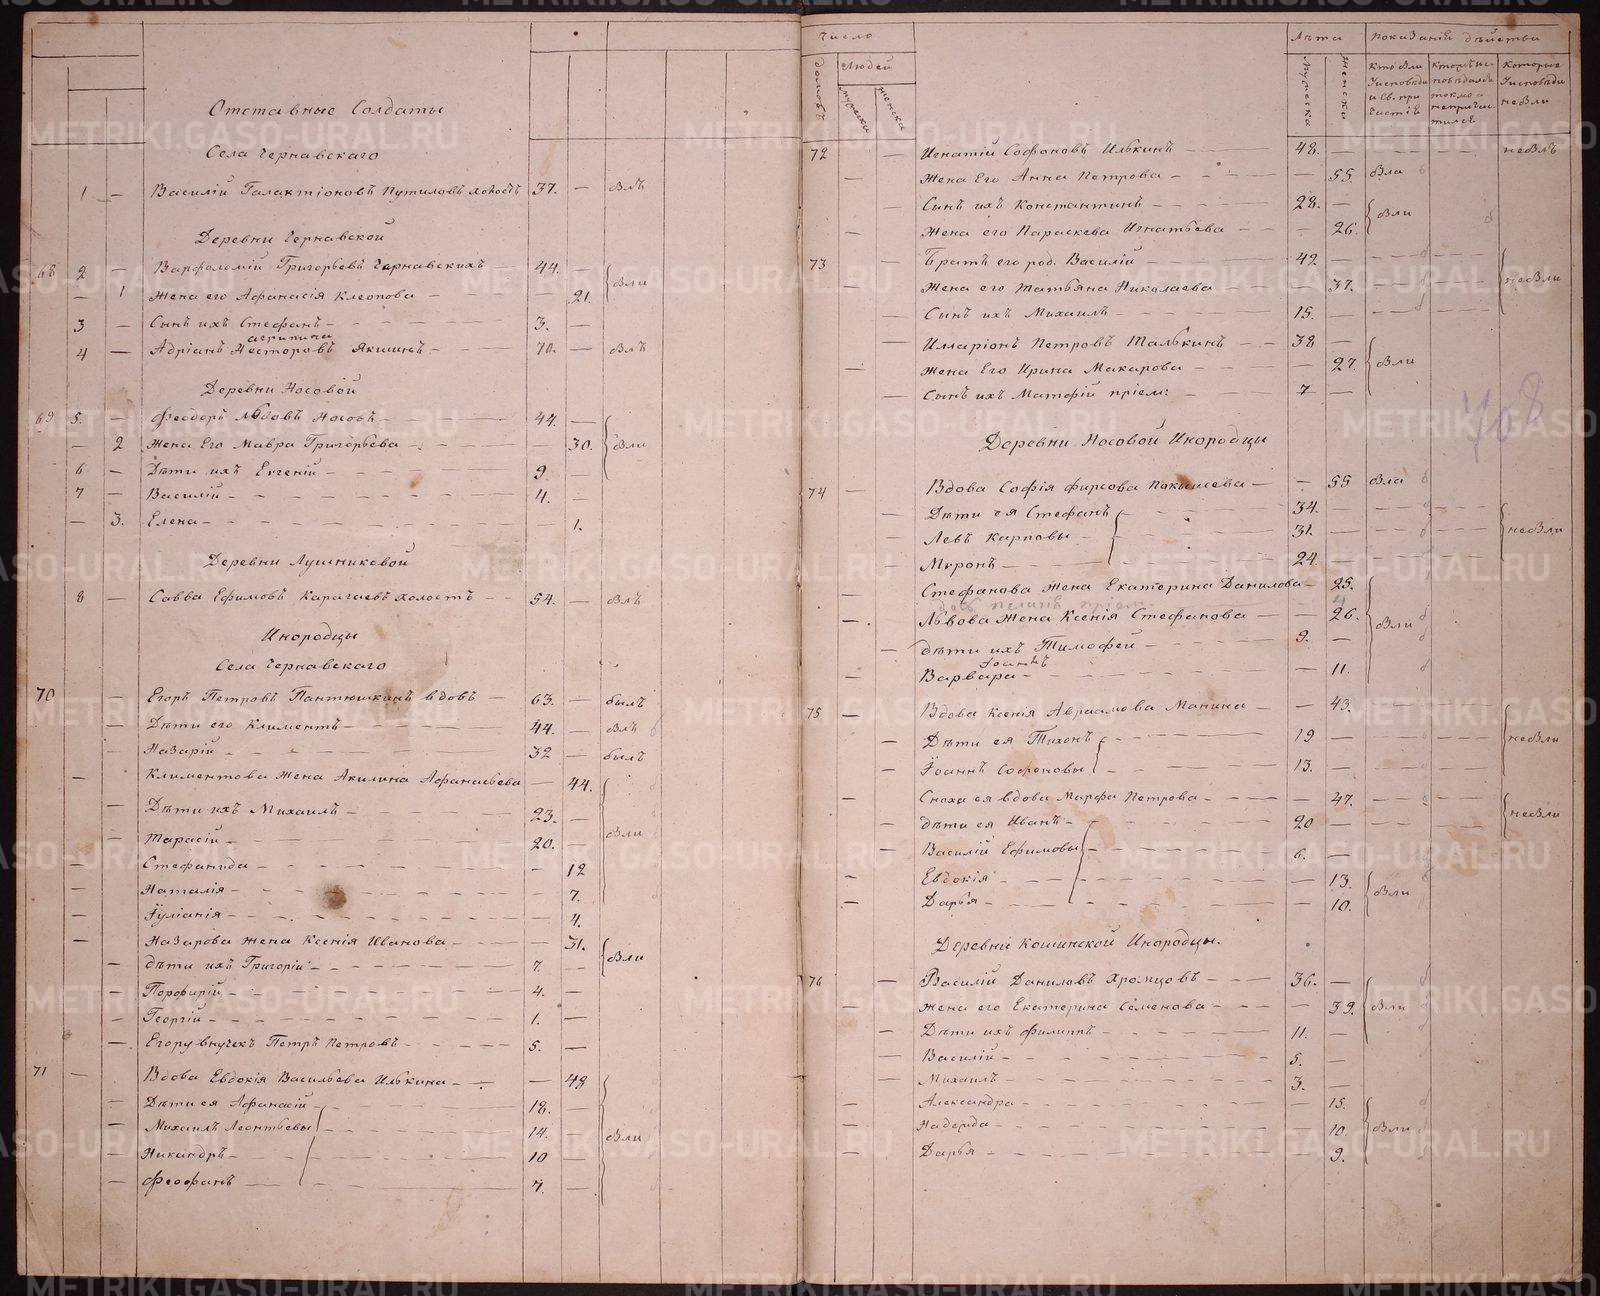 Отставные Солдаты
Села Чернавскаго
1 — Василій Галактіоновъ Путиловъ холостъ 37. — былъ
Деревни Чернавской
68 2 — Варфоломій Григорьевъ Чернавскихъ 44. —
— 1 Жена его Афанасія Клеопова — 21. были
3 — Сынъ ихъ Стефанъ 3. —
агрипина
4 — Адріанъ Несторовъ Якшинъ 70. — былъ
Деревни Носовой
69 5. — Феодоръ Носовъ 44. —
— 2 Жена Его Мавра Григорьева — 30. были
6 — Дѣти ихъ Евгеній 9. —
7 — Василій 4. —
— 3. Елена — 1.
Деревни Лушниковой
8 — Савва Ефимовъ Карагаевъ холостъ 54. — былъ
Инородцы
Села Чернавскаго
70 — Егоръ Петровъ Пантюшкинъ вдовъ 63. — былъ
— Дѣти его Климентъ 44. — былъ
— Назарій 32 — былъ
— Климентова жена Акилина Афанасьева — 44.
— Дѣти ихъ Михаилъ 23. —
— Тарасій 20. были
— Стефанида — 12
— Наталія — 7.
— Іуліанія — 4.
— Назарова жена Ксенія Иванова — 31.
— дѣти ихъ Григорій 7. — были
— Порфирій 4. —
— Георгій 1. —
— Егору внучекъ Петръ Петровъ 5. —
71 — Вдова Евдокія Васильева Илькина — 48
— Дѣти ея Афанасій 18. —
— Михаилъ Леонтьевы 14. — были
— Никандръ 10 —
— Феофанъ 7. —
Число
Людей
домовъ
мужеска
женска
Лѣта
мужеска
женска
Показаніе дѣйства
Кто были
Уисповѣди
и св. при
частіѣ
Которые
Уисповѣди
небыли
72 — Игнатій Софоновъ Илькинъ 48. — небылъ
— Жена Его Анна Петрова — 55. была
— Сынъ ихъ Константинъ 28. —
— Жена его Параскева Игнатьева — 26. были
73 — Братъ его род. Василій 42 —
— Жена его Татьяна Николаева — 37. небыли
— Сынъ ихъ Михаилъ 15. —
— Илларіонъ Петровъ Талькинъ 38 —
— Жена Его Ирина Макарова — 27. были
— Сынъ ихъ Матфій пріем: 7 —
408
Деревни Носовой Инородцы
74 — Вдова Софія Фирсова Покышева — 55 была
— Дѣти ея Стефанъ 34. —
— Левъ Карповы 31. — небыли
— Миронъ 24 —
— Стефанова Жена Екатерина Данилова — 25.
— Львова Жена Ксенія Стефанова — 26. были
— дѣти ихъ Тимофей 9. —
— Варвара — 11.
75 — Вдова Ксенія Авраамова Манина — 43.
— Дѣти ея Тихонъ 19 — небыли
— Іоаннъ Софоновы 13. —
— Сноха ея вдова Марфа Петрова — 47.
— дѣти ея Иванъ 20 — небыли
— Василій Ефимовы 6. —
— Евдокія — 13. были
— Дарья — 10.
Деревни Кошинской Инородцы.
76 — Василій Даниловъ Хромцовъ 36. —
— жена его Екатерина Семенова — 39. были
— Дѣти ихъ Филиппъ 11. —
— Василій 5. —
— Михаилъ 3. —
— Александра — 15.
— Надежда — 10. были
— Дарья — 9.
METRIKI.GASO-URAL.RU